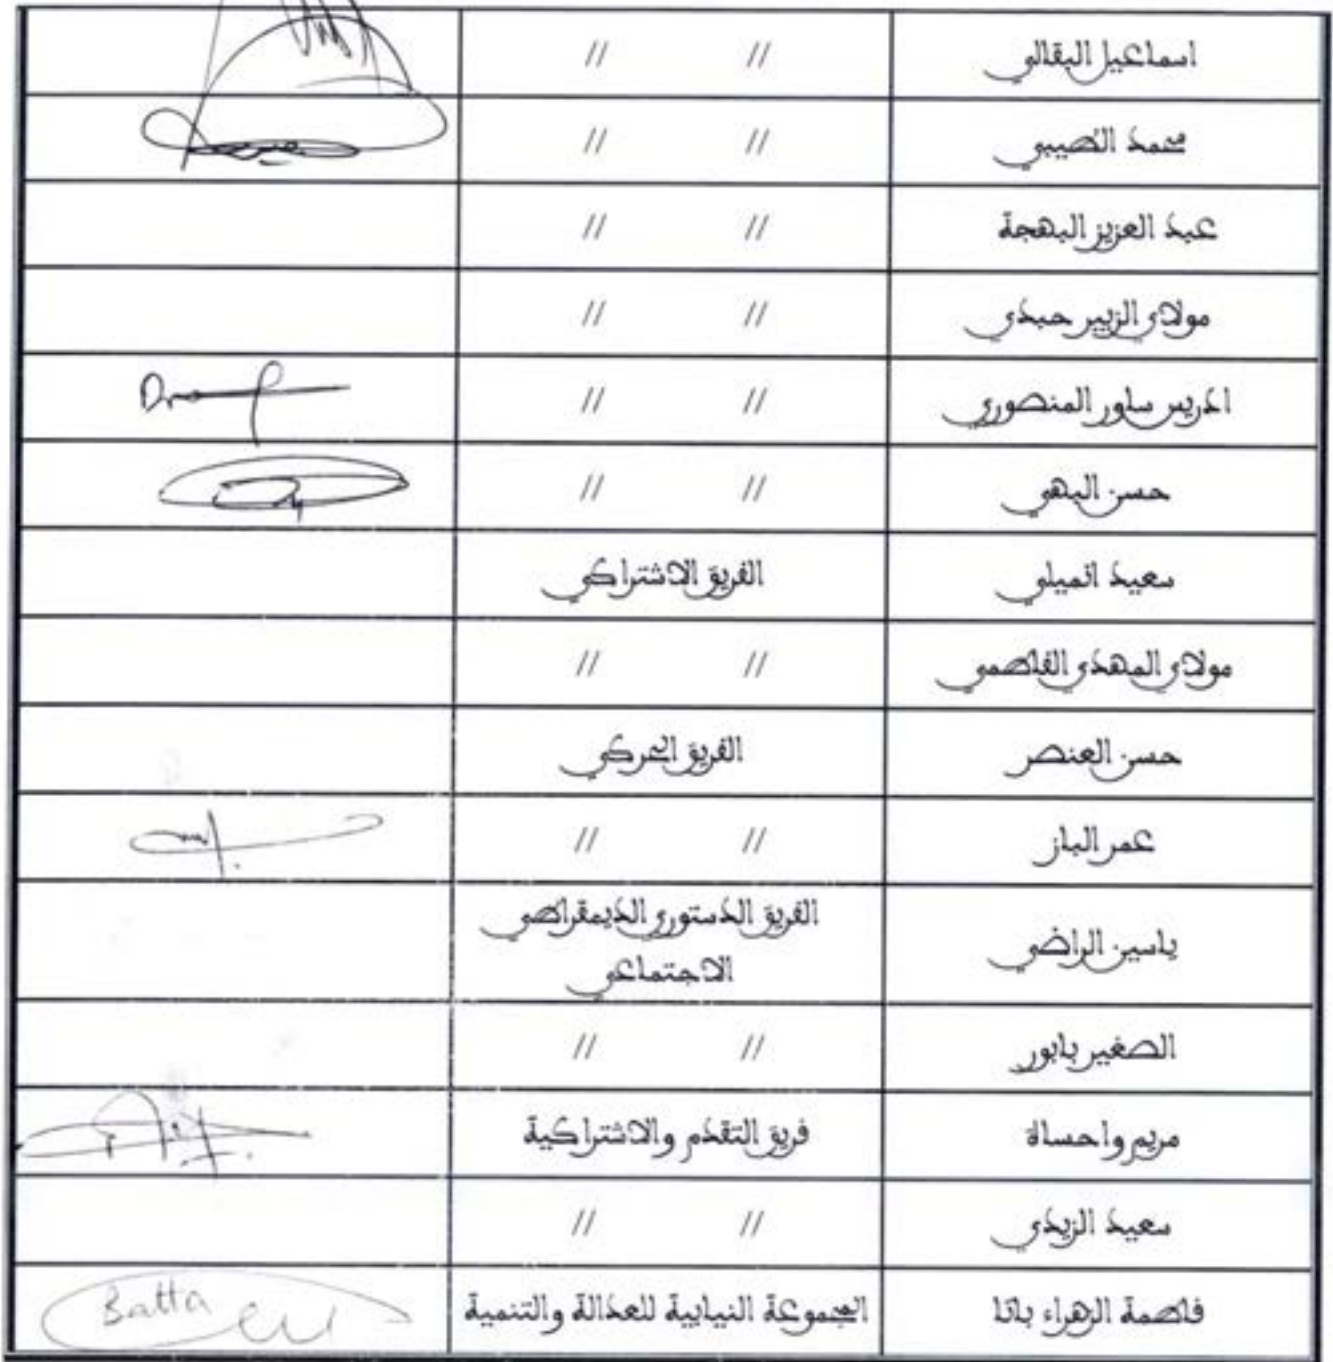 اسماعيل البقالي // //
محمد الطيبي // //
عبد العزيز البهجة // //
مولاي الزبير حبدي // //
ادريس ساور المنصوري // //
حسن البهي // //
سعيد انميلي الفريق الاشتراكي
مولاي المهدي الفاطمي // //
حسن العنصر الفريق الحركي
عمر الباز // //
ياسين الراضي الفريق الدستوري الديمقراطي
الاجتماعي
الصغير بابور // //
مريم واحساة فريق التقدم والاشتراكية
سعيد الزيدي // //
فاطمة الزهراء باتا المجموعة النيابية للعدالة والتنمية Batta